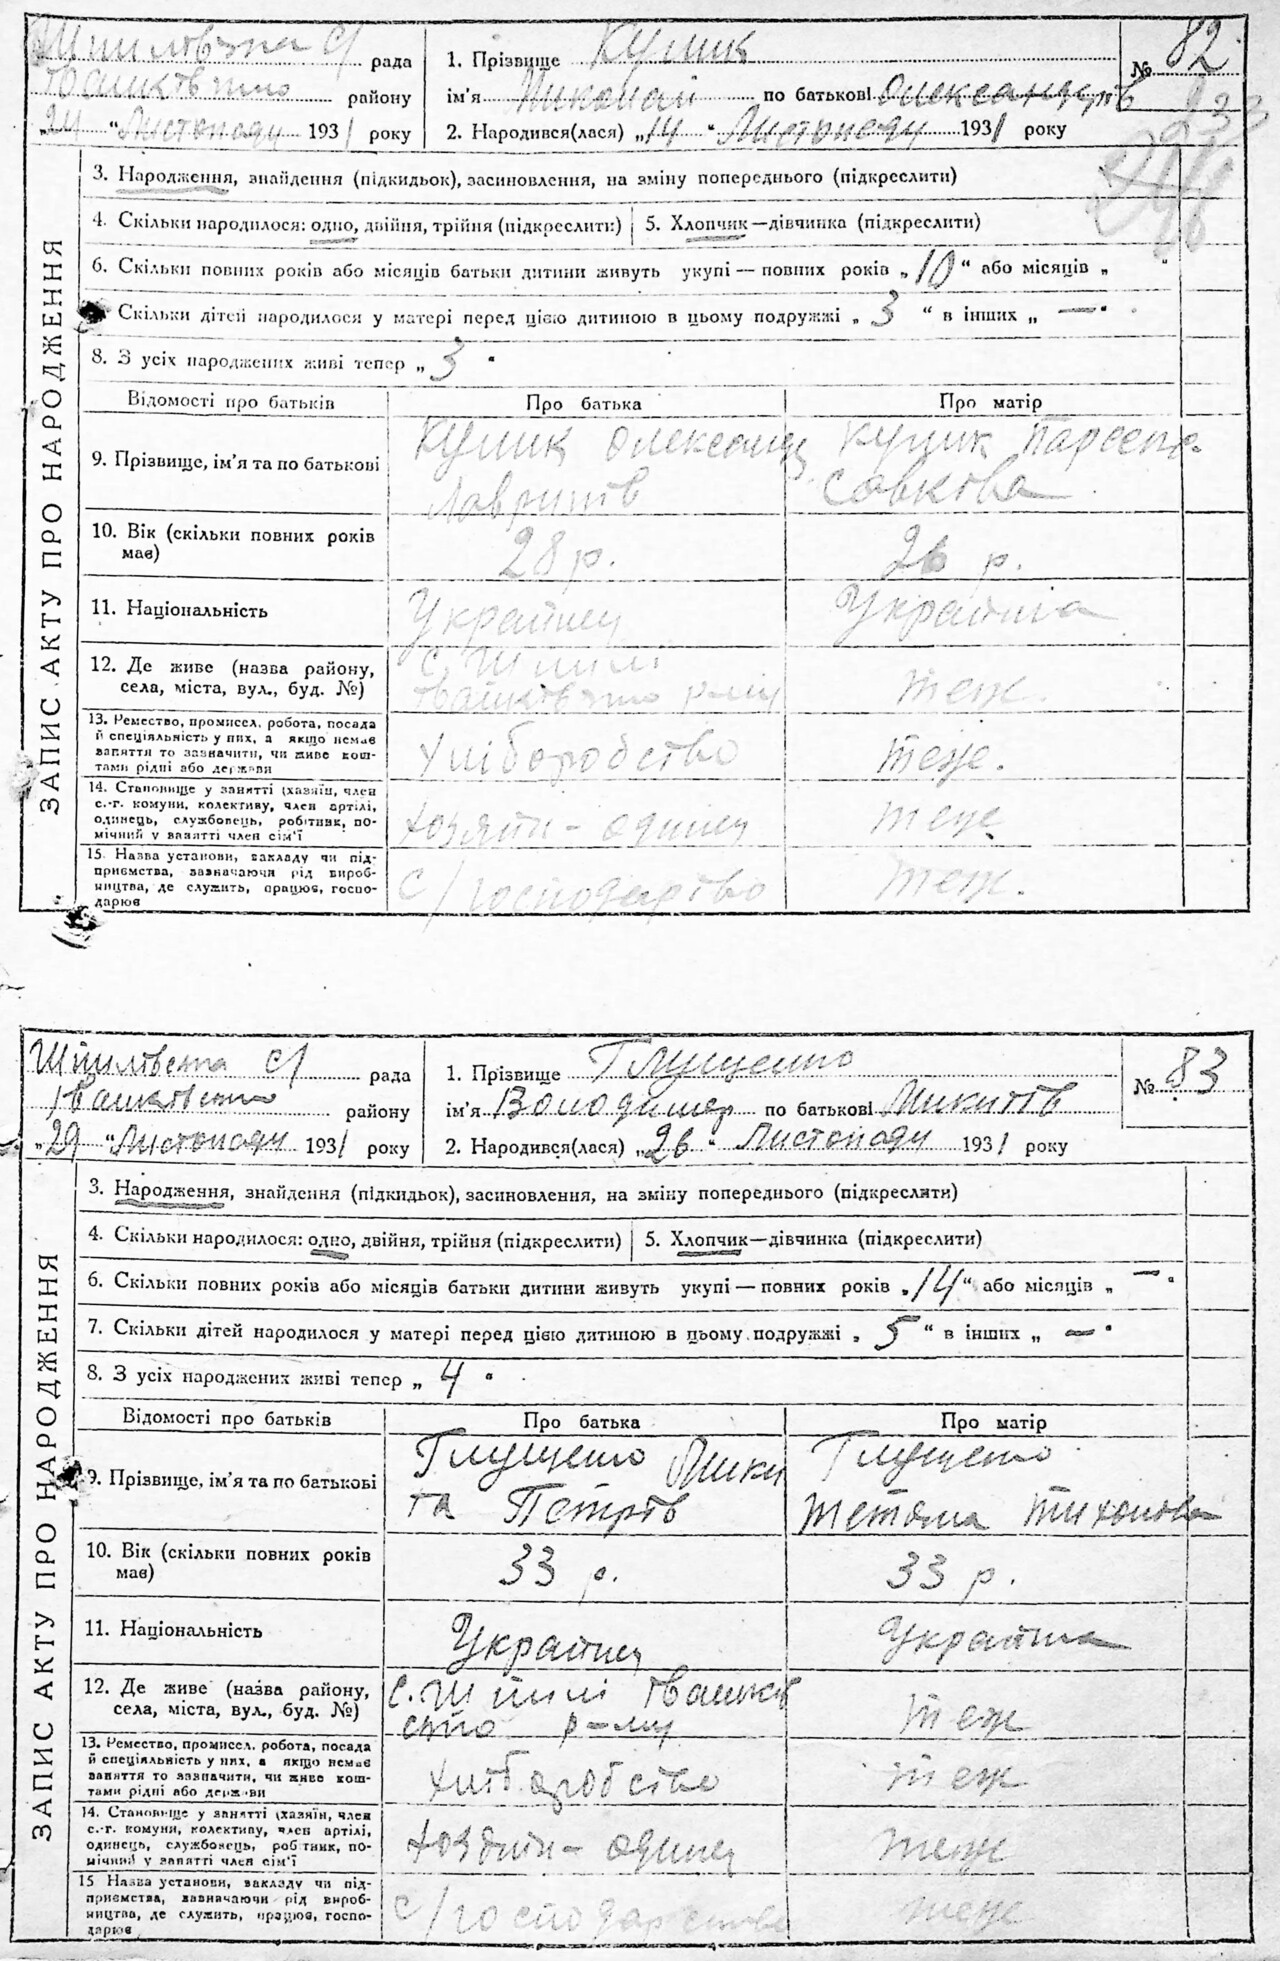 Шпилівська с/ рада
Іванківського району
„24 “ Листопаду 1931 року
1. Прізвище Кулик
ім'я Миколай по батькові Олександрів
2. Народився(лася) „14 “ Листопаду 1931 року
№ 82
233
ЗАПИС АКТУ ПРО НАРОДЖЕННЯ
3. Народження, знайдення (підкидьок), засиновлення, на зміну попереднього (підкреслити)
4. Скільки народилося: одно, двійня, трійня (підкреслити) 5. Хлопчик—дівчинка (підкреслити)
6. Скільки повних років або місяців батьки дитини живуть укупі — повних років „ 10 “ або місяців „ “
Скільки дітей народилося у матері перед цією дитиною в цьому подружжі „ 3 “ в інших „ — “
8. З усіх народжених живі тепер „ 3 “
Відомості про батьків Про батька Про матір
9. Прізвище, ім'я та по батькові
Кулик Олександ
Лаврипів
Кулик
Савківа
10. Вік (скільки повних років
має)
28 р. 26 р.
11. Національність Українец Українка
12. Де живе (назва району,
села, міста, вул., буд. №)
с. Шпилі
р-ну
теж.
13. Ремество, промисел, робота, посада
й спеціяльність у них, а якщо немає
заняття то зазначити, чи живе кош-
тами рідні або держави
хліборобство теж.
14. Становище у занятті (хазяїн, член
с.-г. комуни, колективу, член артілі,
одинець, службовець, робітник, по-
мічний у занятті член сім'ї
хозяїн – одинец теж
15. Назва установи, закладу чи під-
приємства, зазначаючи рід вироб-
ництва, де служить, працює, госпо-
дарює
с/господарство теж.
Шпилівська с/ рада
Іванківського району
„29 “ Листопаду 1931 року
1. Прізвище Глущенко
ім'я Володимер по батькові Микитів
2. Народився(лася) „26 “ Листопаду 1931 року
№ 83
ЗАПИС АКТУ ПРО НАРОДЖЕННЯ
3. Народження, знайдення (підкидьок), засиновлення, на зміну попереднього (підкреслити)
4. Скільки народилося: одно, двійня, трійня (підкреслити) 5. Хлопчик—дівчинка (підкреслити)
6. Скільки повних років або місяців батьки дитини живуть укупі — повних років „ 14 “ або місяців „ — “
7. Скільки дітей народилося у матері перед цією дитиною в цьому подружжі „ 5 “ в інших „ — “
8. З усіх народжених живі тепер „ 4 “
Відомості про батьків Про батька Про матір
9. Прізвище, ім'я та по батькові
Глущенко Мики
та Петрів
Глущенко
Тетяна Тихонова
10. Вік (скільки повних років
має)
33 р. 33 р.
11. Національність Українец Українка
12. Де живе (назва району,
села, міста, вул., буд. №)
с. Шпилі Іванків
ського р-ну
теж
13. Ремество, промисел, робота, посада
й спеціяльність у них, а якщо немає
заняття то зазначити, чи живе кош-
тами рідні або держави
хліборобство теж
14. Становище у занятті (хазяїн, член
с.-г. комуни, колективу, член артілі,
одинець, службовець, робітник, по-
мічний у занятті член сім'ї
хозяїн – одинец теж
15 Назва установи, закладу чи під-
приємства, зазначаючи рід вироб-
ництва, де служить, працює, госпо-
дарює
с/господарство теж